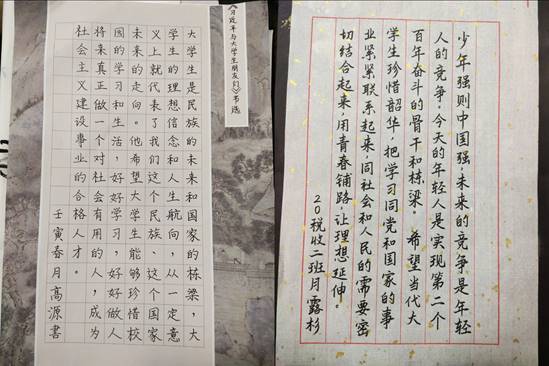 《习近平与大学生朋友们》书选
大学生是民族的未来和国家的栋梁，大
学生的理想信念和人生航向，从一定意
义上就代表了我们这个民族、这个国家
未来的走向。他希望大学生能够珍惜校
园的学习和生活，好好学习，好好做人
将来真正做一个对社会有用的人，成为
社会主义建设事业的合格人才。
壬寅春月高源書
少年强则中国强，未来的竞争是年轻
人的竞争，今天的年轻人是实现第二个
百年奋斗的骨干和栋梁。希望当代大
学生珍惜韶华，把学习同党和国家的事
业紧紧联系起来，同社会和人民的需要密
切结合起来，用青春铺路，让理想延伸。
20税收二班月露杉